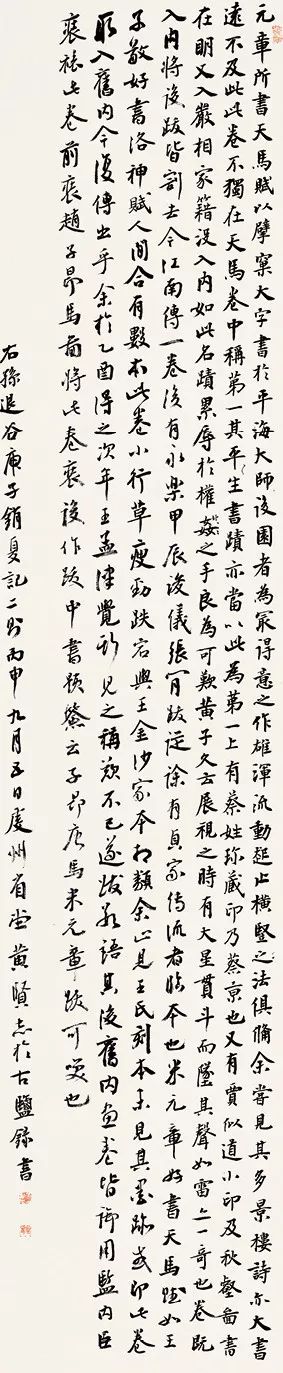 元章所書天馬賦以擘窠大字書於平海大師後園者為最得意之作雄渾流動起止橫豎之法俱備余嘗見其多景樓詩亦大書
遠不及此此卷不獨在天馬卷中稱第一其平生書蹟亦當以此為第一上有蔡姓珍藏印乃蔡京也又有賈似道小印及秋壑圖書
在明又入嚴相家籍沒入內如此名蹟累辱於權姦之手良為可歎黃子久云展視之時有大星貫斗而墜其聲如雷亦一奇也卷既
入內將後跋皆割去今江南傳一卷後有永樂甲辰浚儀張肎跋從徐有貞家傳流者臨本也米元章好書天馬賦如王
子敬好書洛神賦人間合有數本此卷小行草瘦勁跌宕與王金沙家本相類余止見王氏刻本未見其墨跡或即此卷
耶入舊內今復傳出乎余於乙酉得之次年王孟津覺斯見之稱歎不已遂跋數語其後舊內畫卷皆御用監內臣
裱裱此卷前裱趙子昂馬圖將此卷裱後作跋中書題籤云子昂唐馬米元章跋可笑也
右孫退谷庚子銷夏記二則丙申九月五日虔州省堂黃賢志於古鹽錄書